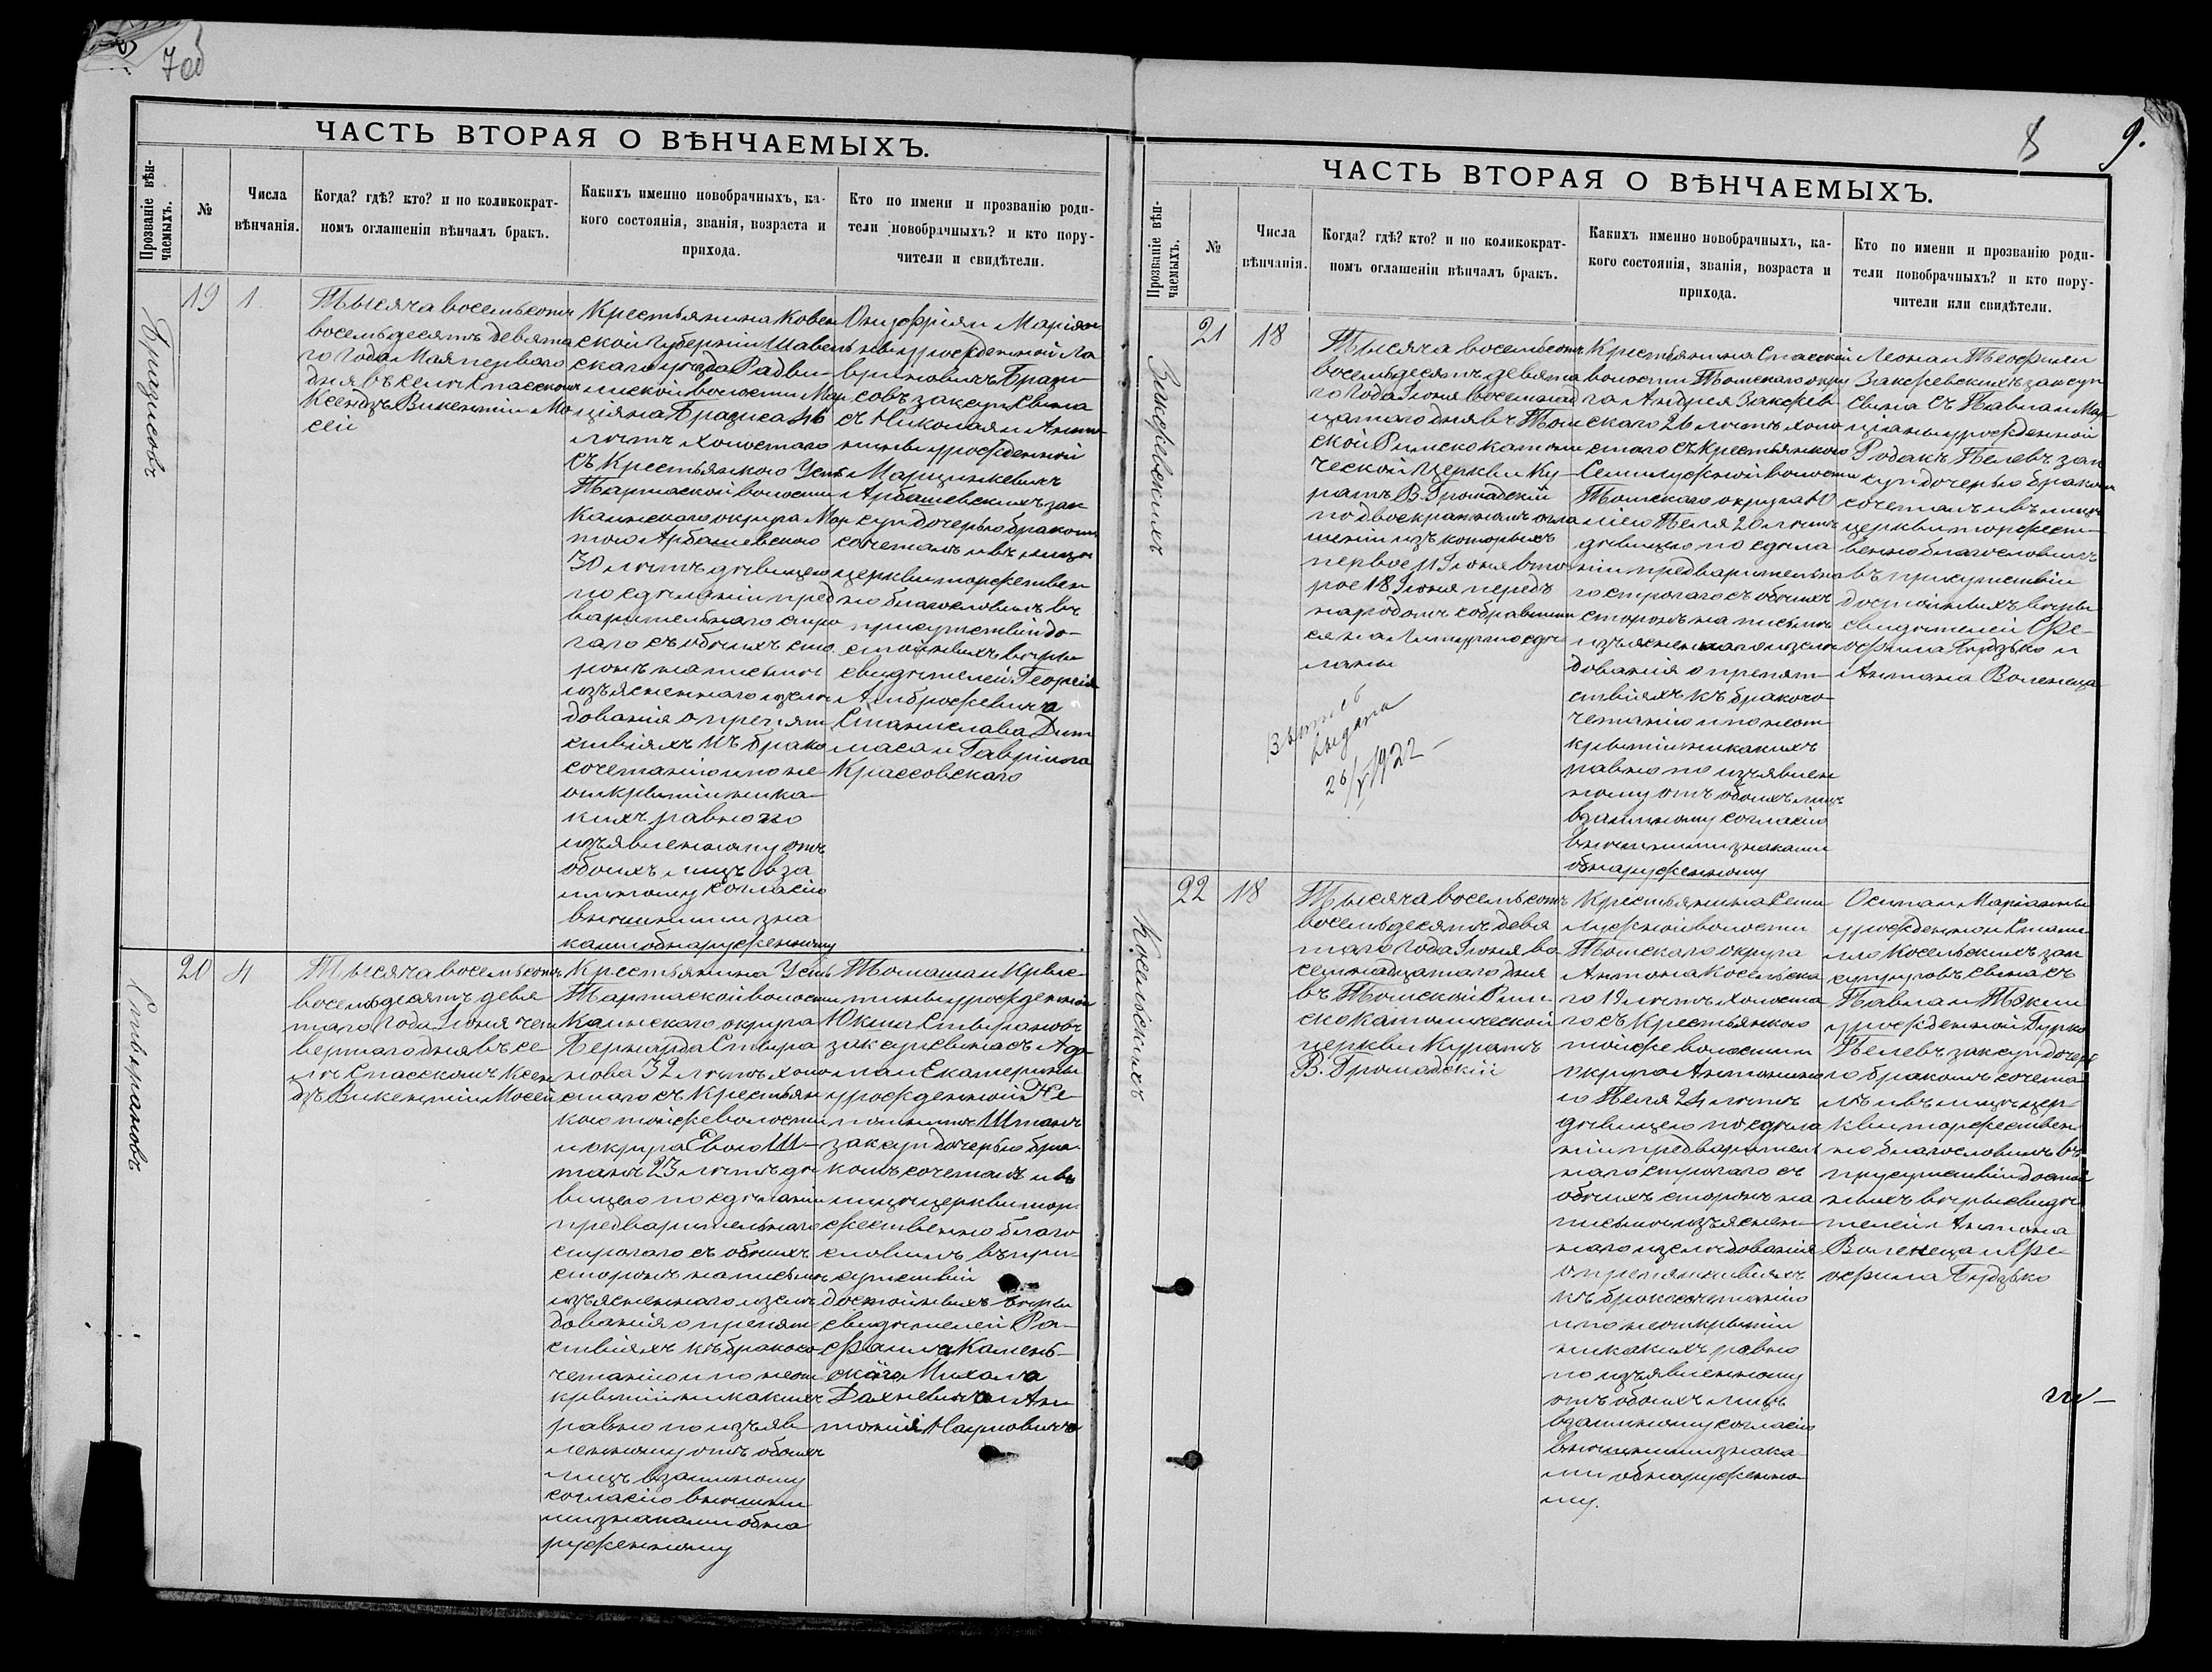 7об
ЧАСТЬ ВТОРАЯ О ВѢНЧАЕМЫХЪ.
Прозваніе вѣн-
чаемыхъ.
№
Числа
вѣнчанія.
Когда? гдѣ? кто? и по коликократ-
номъ оглашеніи вѣнчалъ бракъ.
Какихъ именно новобрачныхъ, ка-
кого состоянія, званія, возраста и
прихода.
Кто по имени и прозванію роди-
тели новобрачныхъ? и кто пору-
чители и свидѣтели.
Брадисовъ
19
1.
Тысяча восемьсотъ
восемьдесятъ девята
го года Мая перваго
дня въ селѣ Спасскомъ
Ксендзъ Викентій Мо
сей
Крестьянина Ковен
ской Губерніи Шавель
скаго уѣзда Радви-
лиской волости Мар
ціяна Брадиса 46
лѣтъ холостаго
съ Крестьянкою Усть
Тартаской волости
Каинскаго округа Мар
тою Арбашевскою
30 лѣтъ дѣвицею
по сдѣланіи пред
варительнаго стро
гаго съ обоихъ сто
ронъ на письмѣ
изъясненнаго изслѣ
дованія о препят
ствіяхъ къ брако
сочетанію и по не-
открытіи ника-
кихъ равно по
изъявленному отъ
обоихъ лицъ вза
имному согласію
внѣшними зна
ками обнаруженному
Онуфрія и Маріян
ны урожденной Ла
вриновичъ Бради-
совъ зак. суп. сына
съ Николая и Анто
нины урожденной
Марцинкевичъ
Арбашевскихъ зак
суп дочерью бракомъ
сочеталъ и въ лицѣ
церкви торжествен
но благословилъ въ
присутствіи до-
стойныхъ вѣры
свидѣтелей Георгія
Амброжевича
Станислава Дит
маса и Гавріила
Крассовскаго
Стыранов
20
4
Тысяча восемьсотъ
восемьдесятъ девя
таго года Іюня чет
вертаго дня въ се-
лѣ Спасскомъ Ксен
дзъ Викентій Мосей
Крестьянина Усть
Тартаской волости
Каинскаго округа
Бернарда Стыра
нова 32 лѣтъ холо
стаго съ Крестьян
кою той же волости
и округа Евою Ш-
танъ 23 лѣтъ дѣ
вицею по сдѣланіи
предварительнаго
строгаго съ обоихъ
сторонъ на письмѣ
изъясненнаго изслѣ
дованія о препят
ствіяхъ къ бракосо
четанію и по неот
крытіи никакихъ
равно по изъяв-
ленному отъ обоихъ
лицъ взаимному
согласію внѣшни
ми знаками обна
руженному
Томаша и Крыс-
тины урожденной
Юкша Стырановъ
зак суп сына съ Ада-
ма и Екатерины
урожденной
Штанъ
зак суп дочерью бра
комъ сочеталъ и въ
лицѣ церкви тор-
жественно благо
словилъ въ при-
сутствіи
достойныхъ вѣры
свидѣтелей Ра-
фаила Камень-
скаго Михаила
Дахневича и Ан
тонія Наумовича
8
9.
ЧАСТЬ ВТОРАЯ О ВѢНЧАЕМЫХЪ.
Прозваніе вѣн-
чаемыхъ.
№
Числа
вѣнчанія.
Когда? гдѣ? кто? и по коликократ-
номъ оглашеніи вѣнчалъ бракъ.
Какихъ именно новобрачныхъ, ка-
кого состоянія, званія, возраста и
прихода.
Кто по имени и прозванію роди-
тели новобрачныхъ? и кто пору-
чители или свидѣтели.
Закржевскихъ
21
18
Тысяча восемьсотъ
восемьдесятъ девята
го года Іюня восемнад
цатаго дня въ Том
ской Римско католи
ческой церкви Ку-
ратъ В. Громадскій
по двоекратномъ огла
шеніи изъ которыхъ
первое 11 Іюня вто
рое 18 Іюня передъ
народомъ собравшим
ся на Литургію сдѣ
ланы
Выпись
выдана
26/V 1922 -
Крестьянина Спасской
волости Томскаго окру
га Андрея Закржев
скаго 26 лѣтъ холо
стаго съ Крестьянкою
Семилужной волости
Томскаго округа Ю
ліею Пеля 20 лѣтъ
дѣвицею по сдѣла
ніи предварительна
го строгаго съ обоихъ
сторонъ на письмѣ
изъясненнаго изслѣ
дованія о препят-
ствіяхъ къ бракосо
четанію и по неот
крытіи никакихъ
равно по изъявлен
ному отъ обоихъ лицъ
взаимному согласію
внѣшними знаками
обнаруженному
Леона и Теофили
Закржевскихъ зак суп
сына съ Павла и Мар-
ціаны урожденной
Родакъ Пелевъ зак
суп дочерью бракомъ
сочеталъ и въ лицѣ
церкви торжест-
венно благословилъ
въ присутствіи
достойныхъ вѣры
свидѣтелей Ѳе-
офила Будзько и
Антона Воленеца
Косельскихъ
22
18
Тысяча восемьсотъ
восемьдесятъ девя
таго года Іюня во
семнадцатаго дня
въ Томской Рим-
ско католической
церкви Куратъ
В. Громадскій
Крестьянина Семи
лужной волости
Томскаго округа
Антона Косельска
го 19 лѣтъ холоста
го съ Крестьянкою
той же волости и
округа Антонино
ю Пеля 24 лѣтъ
дѣвицею по сдѣла
ніи предваритель
наго строгаго съ
обоихъ сторонъ на
письмѣ изъяснен-
наго изслѣдованія
о препятствіяхъ
къ бракосочетанію
и по неоткрытіи
никакихъ равно
по изъявленному
отъ обоихъ лицъ
взаимному согласію
внѣшними знака-
ми обнаруженно
му.
Осипа и Маріанны
урожденной
Косельскихъ зак
супруговъ сына съ
Павла и Тэкли
урожденной Гурко
Пелевъ зак суп дочерь
ю бракомъ сочета-
лъ и въ лицѣ цер-
кви торжествен
но благословилъ въ
присутствіи достой
ныхъ вѣры свидѣ
телей Антона
Воленеца и Ѳе-
офила Будзько